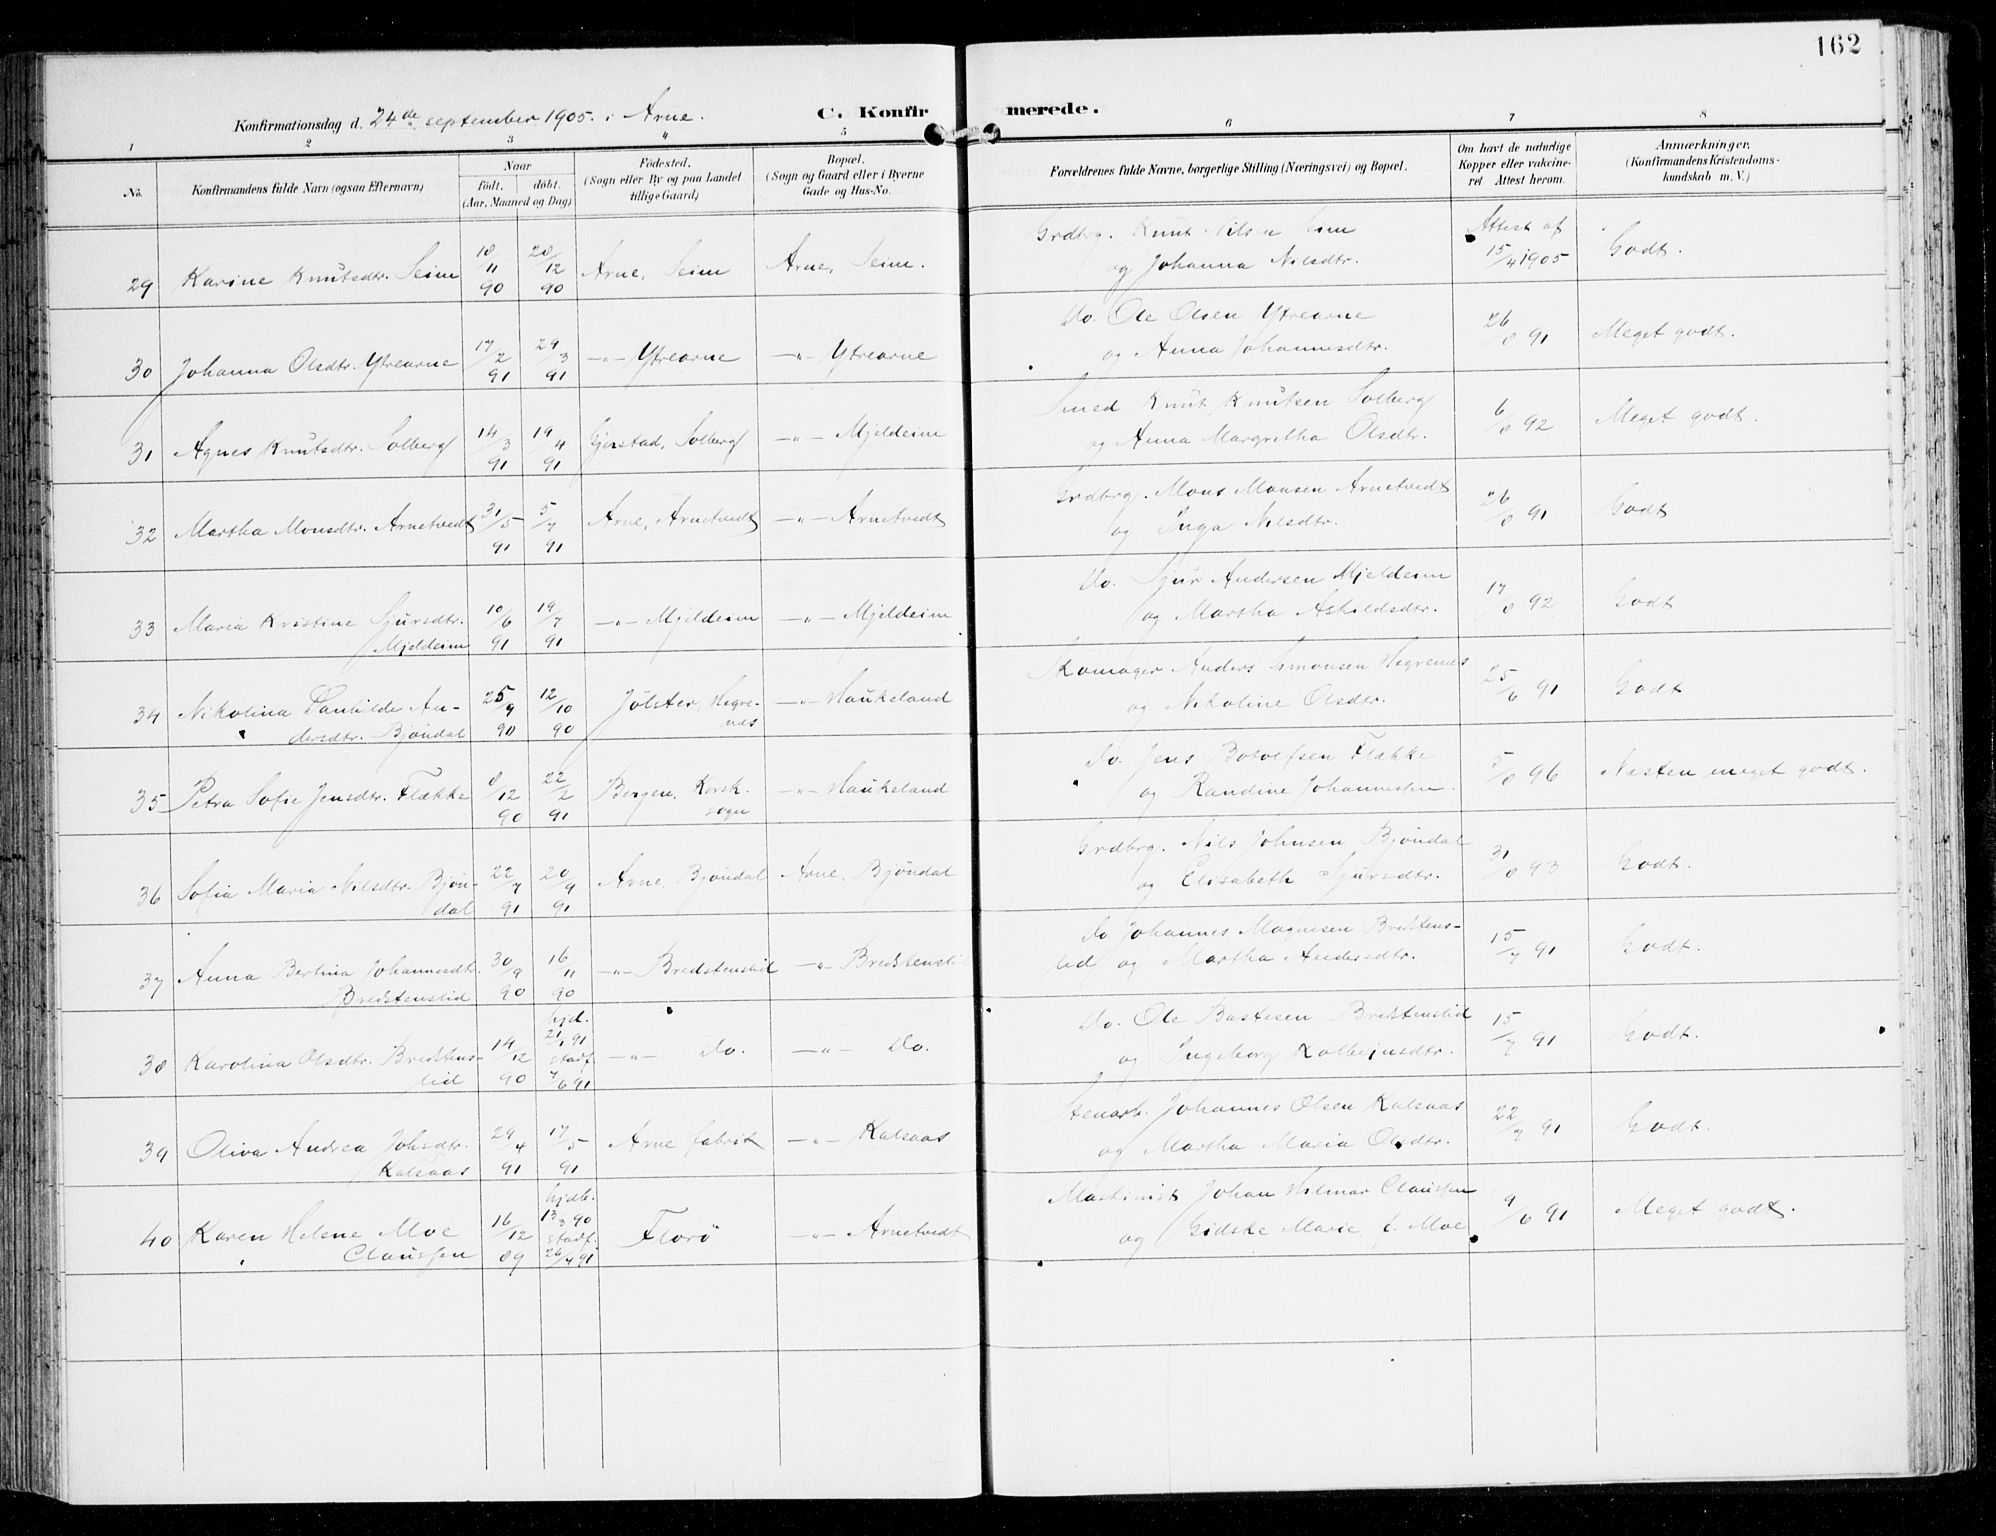 162
Konfirmationsdag d. 24de september 1905. i Arne. C. Konfirmerede.
1 2 3 4 5 6 7 8
No. Konfirmandens fulde Navn (ogsaa Efternavn)
Naar født, døbt. (Aar, Maaned og Dag)
Fødested. (Sogn eller By og paa Landet tillige Gaard)
Bopæl. (Sogn og Gaard eller i Byerne Gade og Hus-No.
Forældrenes fulde Navne, borgerlige Stilling (Næringsvei) og Bopæl.
Om havt de naturlige Kopper eller vakcineret. Attest herom.
Anmærkninger. (Konfirmandens Kristendomskundskab m. V.)
29 Karine Knutsdtr. Seim 18/11 90 28/12 90 Arne, Seim Arne, Seim. Grdbrg. Knut Nilsen Seim Attest af Godt.
og Johanna Nilsdtr. 15/4 1905
30 Johanna Olsdtr. Ytrearne 17/2 91 29/3 91 -"- Ytrearne -"- Ytrearne Do. Ole Olsen Ytrearne 26/8 91 Meget godt.
og Anna Johannesdtr.
31 Agnes Knutsdtr. Solberg 14/3 91 19/4 91 Gjerstad, Solberg -"- Mjeldeim Smed Knut Knutsen Solberg 6/8 92 Meget godt.
og Anna Margretha Olsdtr.
32 Martha Monsdtr. Arnetvedt 31/5 91 5/7 91 Arne, Arnetvedt -"- Arnetvedt Grdbrg. Mons Monsen Arnetvedt 26/8 91 Godt
og Inga Nilsdtr.
33 Maria Kristine Sjursdtr. 10/6 91 19/7 91 -"- Mjeldeim -"- Mjeldeim Do. Sjur Andersen Mjeldeim 17/8 92 Godt
Mjeldeim og Martha Askildsdtr.
34 Nikolina Danhilde An- 25/9 90 12/10 90 Jølster, Hegre- -"- Haukeland Skomager Anders Simonsen Hegrenes 25/6 91 Godt
dersdtr. Bjøndal nes og Nikoline Olsdtr.
35 Petra Sofie Jensdtr. Flække 8/12 90 22/2 91 Bergen, Korsk. -"- Haukeland Do. Jens Botolfsen Flække 5/8 96 Næsten meget godt.
sogn og Randine Johannessen.
36 Sofia Maria Nilsdtr. Bjøn- 22/7 91 20/9 91 Arne, Bjøndal Arne, Bjøndal Grdbrg. Nils Johnsen Bjøndal 31/8 93 Godt.
dal og Elisabeth Sjursdtr.
37 Anna Bertina Johannesdt. 30/9 90 16/11 90 -"- Bredstenslid -"- Bredstenslid Do Johannes Magnesen Bredstens- 15/7 91 Godt.
Bredstenslid lid og Martha Andersdtr.
38 Karolina Olsdtr. Bredstens- 14/12 90 hjd. 21/1 91 stadf. 7/6 91 -"- Do. -"- Do. Do. Ole Bastesen Bredstenslid 15/7 91 Godt.
lid og Ingeborg Kolbejnsdtr.
39 Oliva Andrea Johsdtr. 29/4 91 17/5 91 Arne fabrik -"- Kalsaas Stenarb. Johannes Olsen Kalsaas 22/7 91 Godt.
Kalsaas og Martha Maria Olsdtr.
40 Karen Helene Moe 16/12 89 hjdb. 13/3 90 stadf. 26/4 91 Florø -"- Arnetvedt Maskinist Johan Hilmar Claussen 9/6 91 Meget godt.
Claussen og Gidske Marie f. Moe